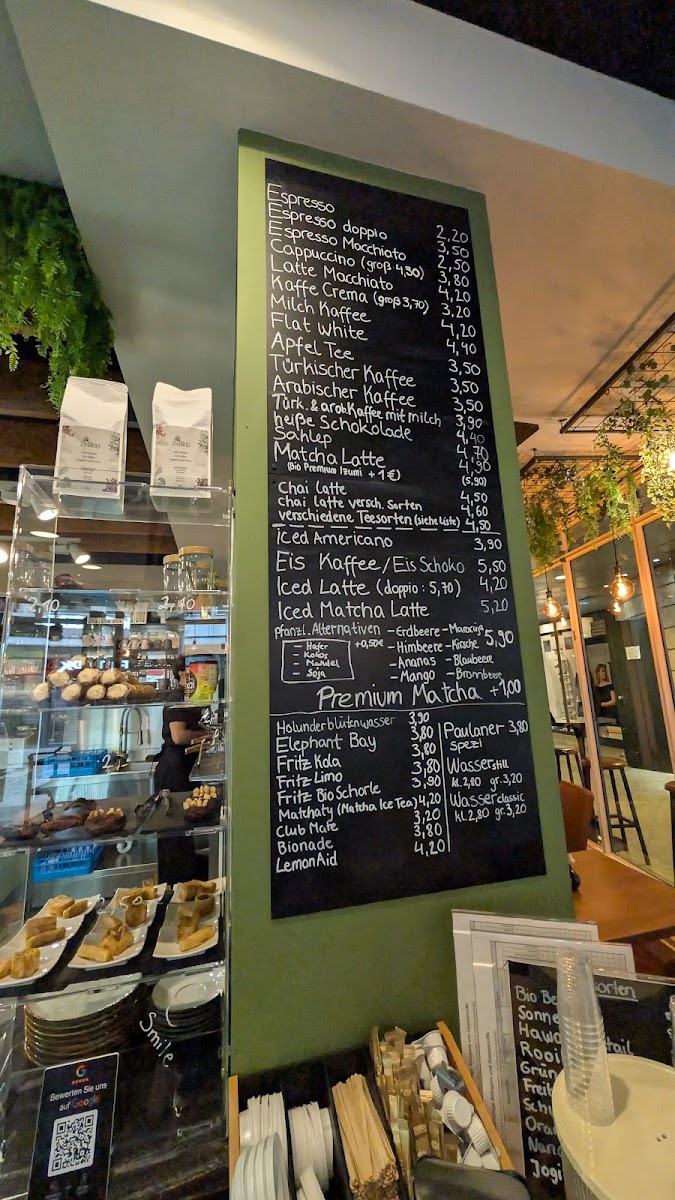 Espresso 2,20
Espresso doppio 3,50
Espresso Macchiato 2,50
Cappuccino (groß 4,30) 3,80
Latte Macchiato 4,20
Kaffe Crema (groß 3,70) 3,20
Milch Kaffee 4,20
Flat White 4,40
Apfel Tee 3,50
Türkischer Kaffee 3,50
Arabischer Kaffee 3,50
Türk. & arab. Kaffee mit milch 3,90
heiße Schokolade 4,40
Sahlep 4,70
Matcha Latte 4,90
(Bio Premium Izumi +1€) (5,90)
Chai latte 4,50
chai latte versch. Sorten 4,60
verschiedene Teesorten (siehe Liste) 4,50
Iced Americano 3,90
Eis Kaffee/Eis Schoko 5,50
Iced Latte (doppio: 5,70) 4,20
Iced Matcha Latte 5,20
pfanzl. Alternativen +0,50€
- Hafer
- Kokos
- Mandel
- Soja
- Erdbeere - Maracuja 5,90
- Himbeere - Kirsche
- Ananas - Blaubeere
- Mango - Brombeere
Premium Matcha +1,00
Holunderblütenwasser 3,90
Elephant Bay 3,80
Fritz Kola 3,80
Fritz Limo 3,80
Fritz Bio Schorle 3,90
Matchaty (Matcha Ice Tea) 4,20
Club Mate 3,20
Bionade 3,80
LemonAid 4,20
Paulaner 3,80
Spezi
Wasser still
kl. 2,80 gr. 3,20
Wasser classic
kl. 2,80 gr. 3,20
2,10
Smile
Bewerten Sie uns
auf Google
Bio